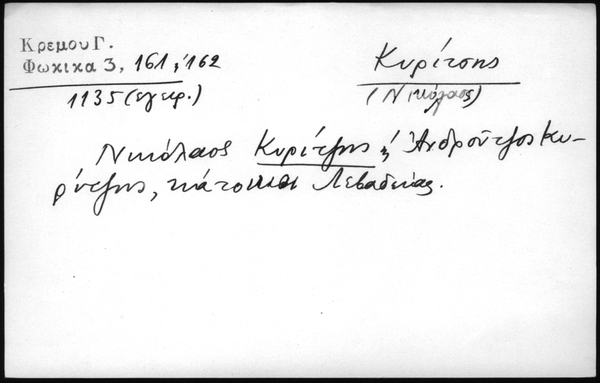 Κρεμου Γ.
Φωκικα 3, 161, 162
1135 (έγγρ.)
Κυρίτσης
(Νικόλαος)
Νικόλαος Κυρίτζης & Ἀνδροῦτζος Κυ-
ρίτζης, κάτοικοι Λεβαδείας.